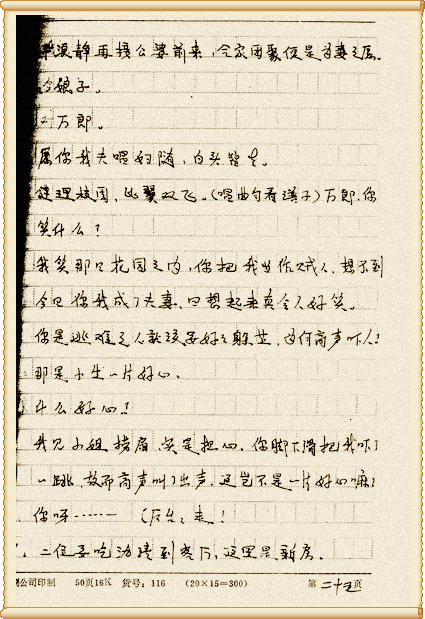 浪静再接公婆前来，合家团聚便是为妻之愿。
娘子。
万郎。
愿你我夫唱妇随，白头皆老。
连理枝园，比翼双飞。（唱曲句看谱子）万郎，你
笑什么？
我笑那日花园之内，你把我当作贼人，想不到
今日你我成了夫妻，回想起来真令人好笑。
你是逃难之人就该好好躲藏，为何高声吓人！
那是小生一片好心。
什么好心！
我见小姐摇扇，实是担心，你脚下滑把我吓了
一跳，故而高声叫了出声，这岂不是一片好心嘛！
你呀……（后台）走！
二位子吃酒请到客厅，这里是新房。
公司印制 50页16K 货号：116 （20×15=300） 第二十五页